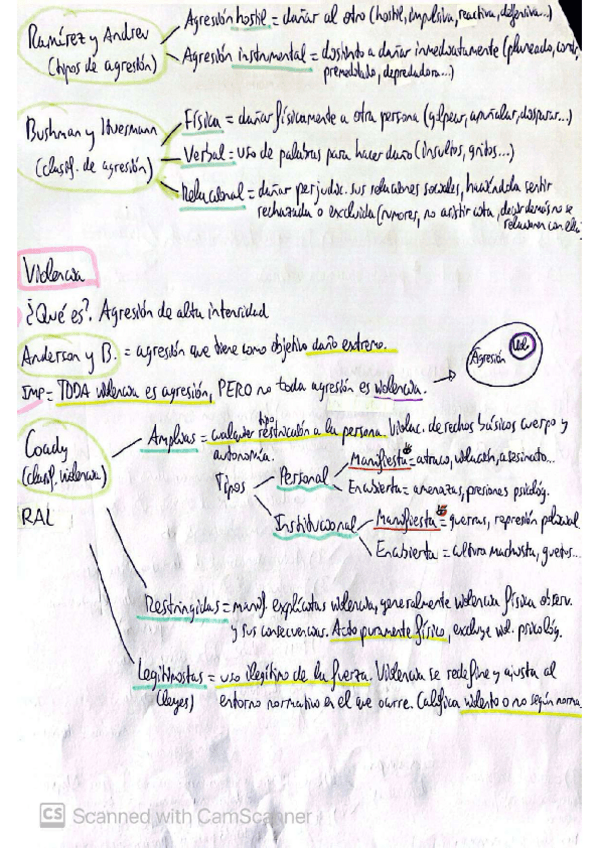 Ramírez y Andreu (tipos de agresión)
Agresión hostil = dañar al otro (hostil, impulsiva, reactiva, defensiva...)
Agresión instrumental = distinto a dañar inmediatamente (planeada, cont
premeditado, depredadora...)
Bushman y Huesmann (clasif. de agresión)
Física = dañar físicamente a otra persona (golpear, apuñalar, disparar...)
Verbal = uso de palabras para hacer daño (insultos, gritos...)
Relacional = dañar perjudic. sus relaciones sociales, haciéndola sentir
rechazada o excluida (rumores, no asistir cita, decir demás no se
relacionen con ella
Violencia
¿Qué es?. Agresión de alta intensidad
Anderson y B. = agresión que tiene como objetivo daño extremo.
IMP = TODA violencia es agresión, PERO no toda agresión es violencia.
Agresión
Viol.
Coady (clasif. violencia)
RAL
Amplias = cualquier tipo restricción a la persona. Violac. derechos básicos cuerpo y
autonomía.
Tipos
Personal
Manifiesta = atraco, violación, asesinato...
Encubierta = amenazas, presiones psicológ.
Institucional
Manifiesta = guerras, represión policial
Encubierta = cultura machista, guetos...
Restringidas = manif. explícitas violencia, generalmente violencia física observ.
y sus consecuencias. Acto puramente físico, excluye viol. psicológ.
Legitimistas = uso ilegítimo de la fuerza. Violencia se redefine y ajusta al
(leyes) entorno normativo en el que ocurre. Califica violento o no según norma
CS Scanned with CamScanner